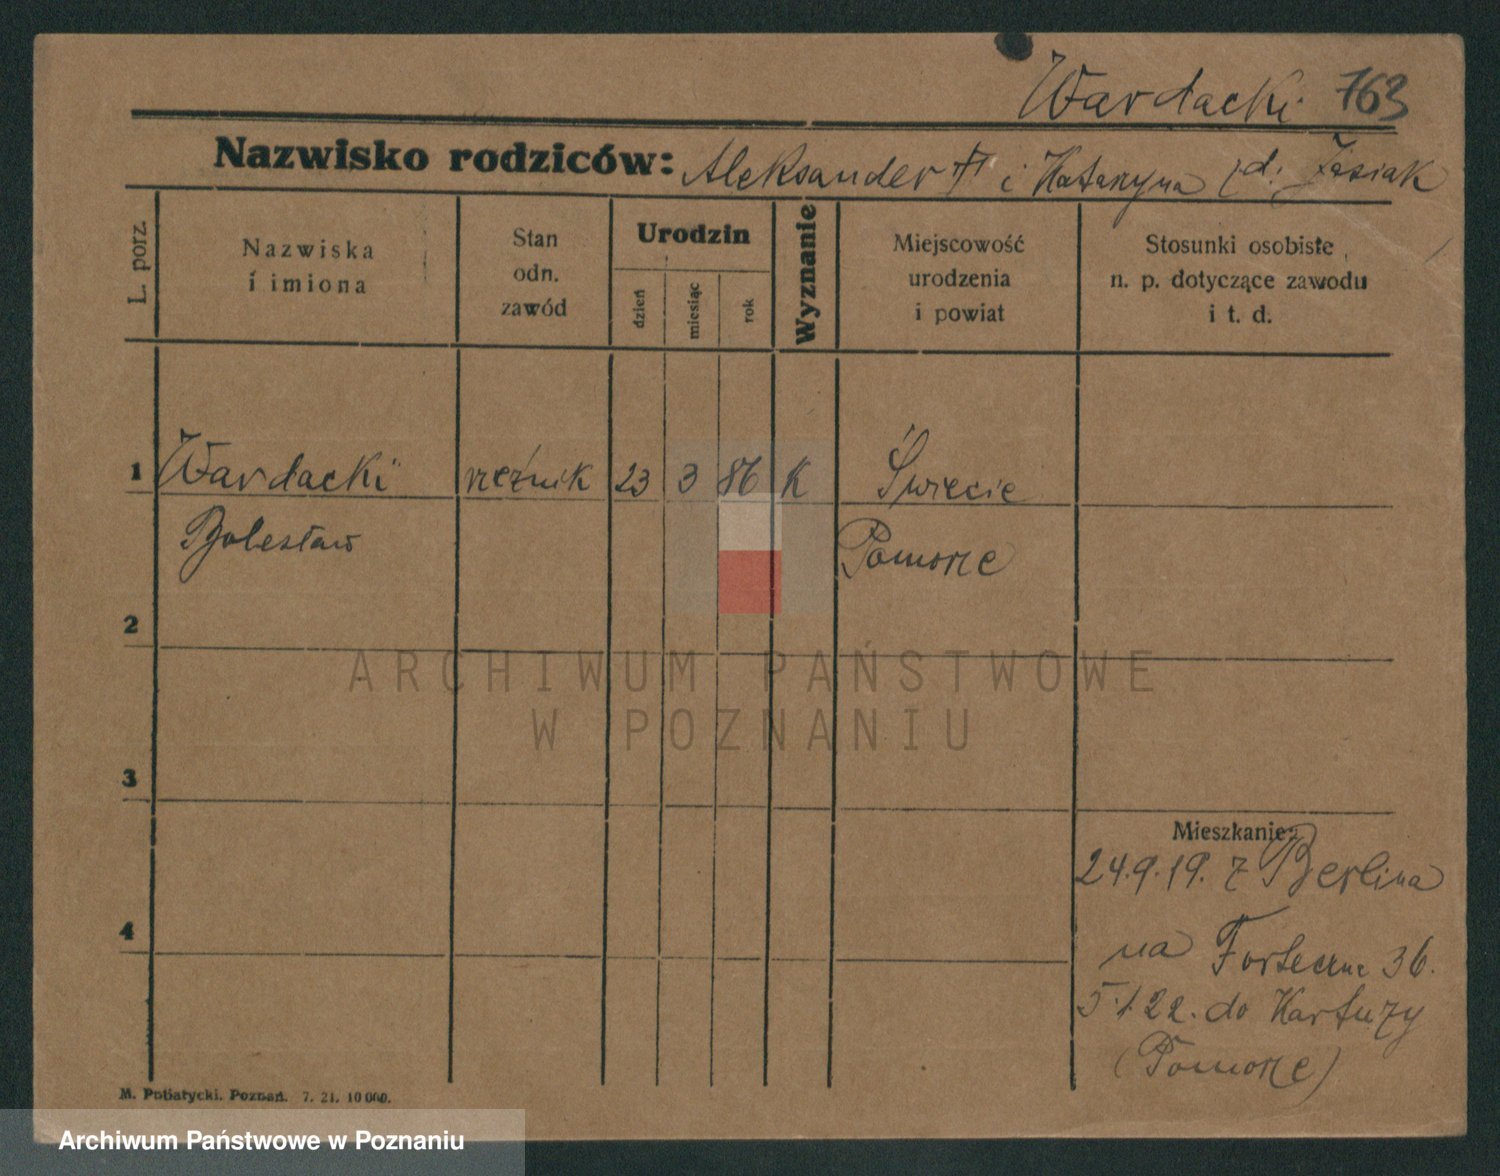 Wardacki 763
Nazwisko rodziców: Aleksander †† i Katarzyna d. Jasiak
L. porz.
Nazwiska
i imiona
Stan
odn.
zawód
Urodzin
dzień
miesiąc
rok
Wyznanie
Miejscowość
urodzenia
i powiat
Stosunki osobiste
n. p. dotyczące zawodu
i t. d.
1 Wardacki rzeźnik 23 3 86 K Świecie
Bolesław Pomorze
2
3
4
Mieszkanie:
24.9.19. z Berlina
na Forteczne 36.
5.1.22. do Kartuzy
(Pomorze)
M. Putiatycki, Poznań. 7. 21. 10 000.
ARCHIWUM PAŃSTWOWE
W POZNANIU
Archiwum Państwowe w Poznaniu